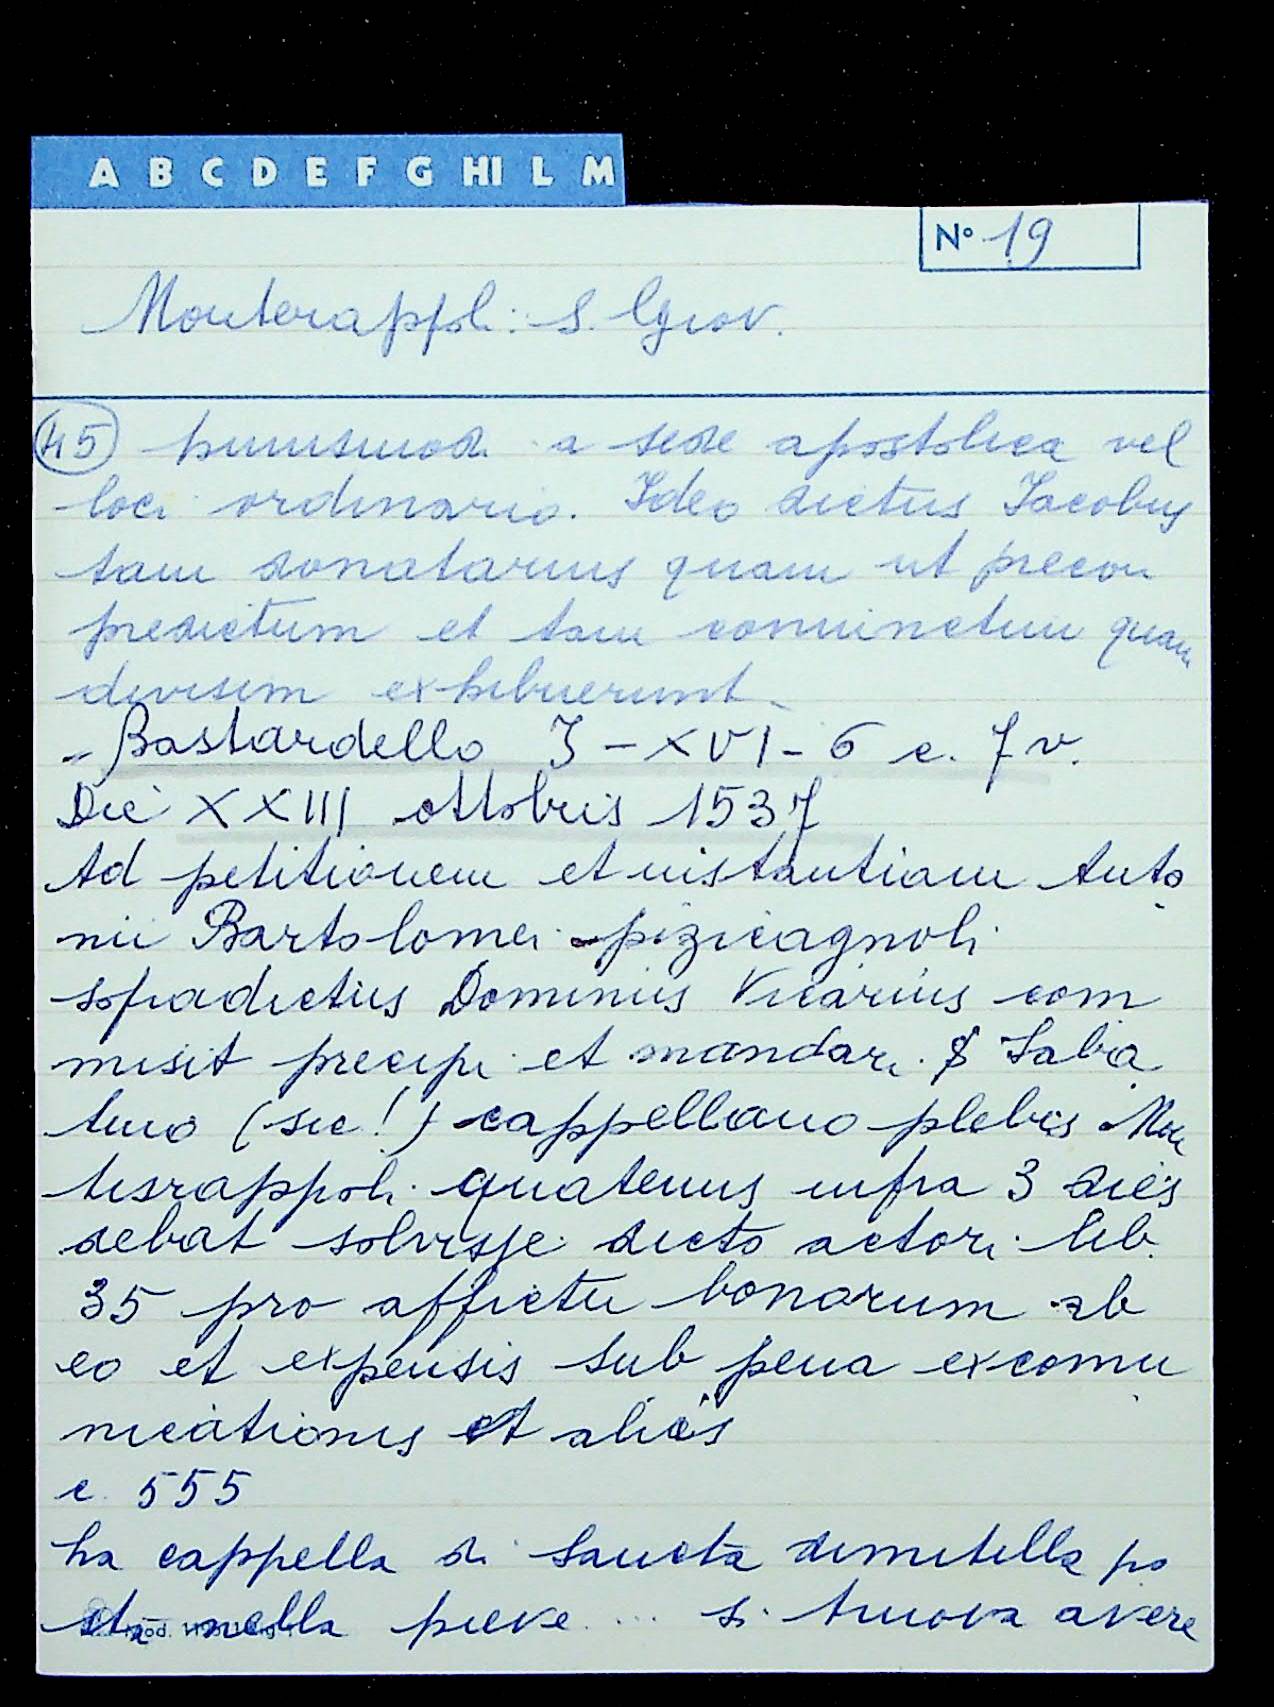 A B C D E F G HI L M
N° 19
Monterappoli: S. Giov.
45 huiusmodi a sede apostolica vel
loci ordinario. Ideo dictus Iacobus
tam donatarius quam ut precon
predictum et tam coniunctim quam
divisim exhibuerunt
- Bastardello I - XVI - 6 c. 7 v.
Die XXIII ottobris 1537
Ad petitionem et instantiam Anto
nii Bartolomei pizicagnoli
sopradictus Dominus Vicarius com
misit precipi et mandari S Saba
tino (sic!) cappellano plebis Mon
tisrappoli quatenus infra 3 dies
debat solvisse dicto actori lib.
35 pro affictu bonorum ab
eo et expensis sub pena excomu
nicationis et alias
c. 555
la cappella di Sancta dimitilla po
sta nella pieve ... si truova avere
Mod.